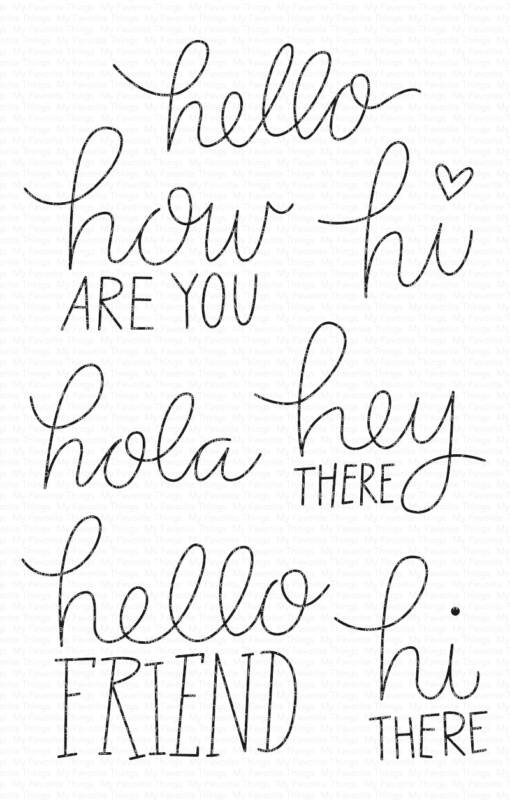 hello
how
ARE YOU
hi
hola
hey
THERE
hello
FRIEND
hi
THERE
My Favorite Things